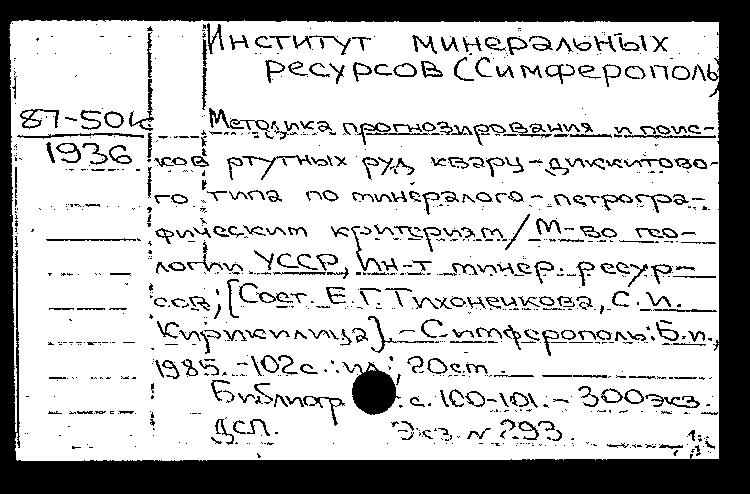 Институт минеральных
ресурсов (Симферополь)
87-50к
1936
Методика прогнозирования и поис-
ков ртутных руд кварц-диккитово-
го типа по минералого-петрогра-
фическим критериям / М-во гео-
логии УССР, Ин-т минер. ресур-
сов; [Сост. Е.Г. Тихоненкова, С.И.
Кирикилица]. - Симферополь: Б.и.,
1985. - 102 с.: ил.; 20 см.
Библиогр.: с. 100-101. - 300 экз.
ДСП. Экз. № 293.